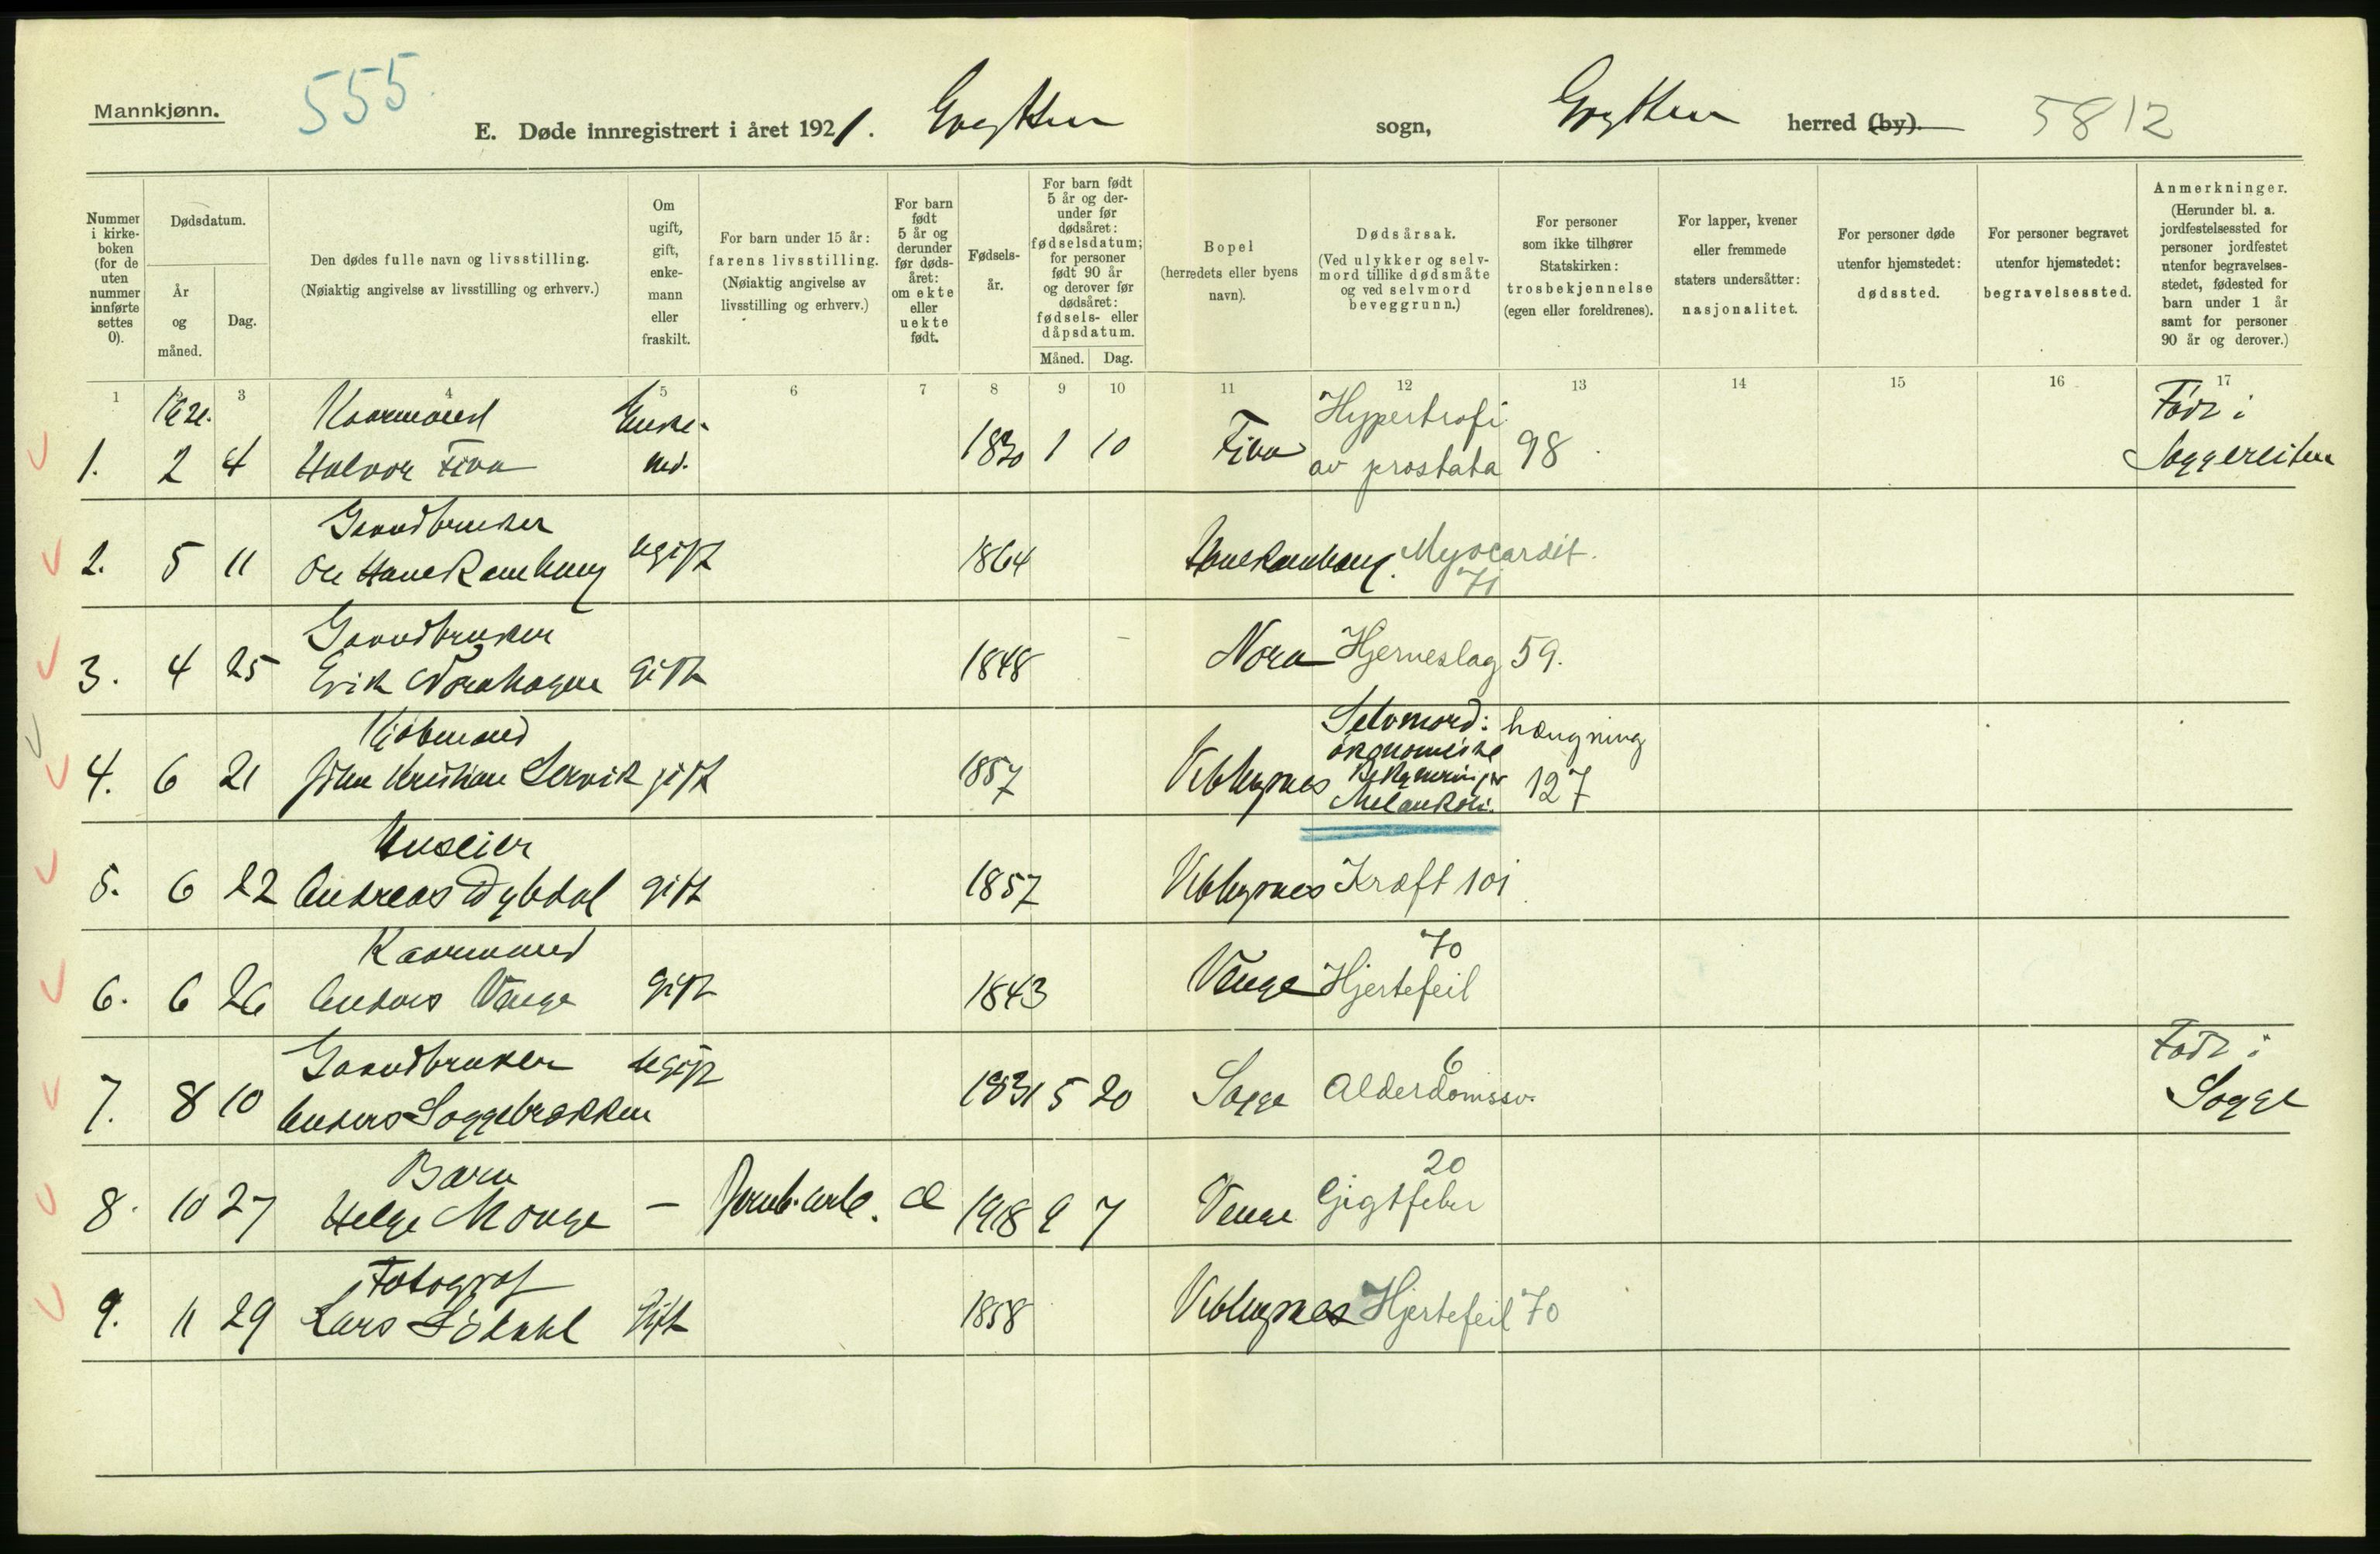 Mannkjønn.
555.
E. Døde innregistrert i året 1921. Grytten sogn, Grytten herred (by). 5812
Nummer i kirke-boken (for de uten nummer innførte settes 0).
Dødsdatum.
År og måned.
Dag.
Den dødes fulle navn og livsstilling.
(Nøiaktig angivelse av livsstilling og erhverv.)
Om ugift, gift, enke-mann eller fraskilt.
For barn under 15 år: farens livsstilling.
(Nøiaktig angivelse av livsstilling og erhverv.)
For barn født 5 år og derunder før døds-året: om ekte eller uekte født.
Fødsels-år.
For barn født 5 år og der-under før dødsåret: fødselsdatum; for personer født 90 år og derover før dødsåret: fødsels- eller dåpsdatum.
Måned. Dag.
Bopel
(herredets eller byens navn).
Dødsårsak.
(Ved ulykker og selv-mord tillike dødsmåte og ved selvmord beveggrunn.)
For personer som ikke tilhører Statskirken: trosbekjennelse (egen eller foreldrenes).
For lapper, kvener eller fremmede staters undersåtter: nasjonalitet.
For personer døde utenfor hjemstedet: dødssted.
For personer begravet utenfor hjemstedet: begravelsessted.
Anmerkninger.
(Herunder bl. a. jordfestelsessted for personer jordfestet utenfor begravelses-stedet, fødested for barn under 1 år samt for personer 90 år og derover.)
1 3 4 5 6 7 8 9 10 11 12 13 14 15 16 17
Kaarmand Enke- Hypertrofi Født i
1. 2 4 Halvor Fiva md. 1830 1 10 Fiva av prostata 98 Soggereiten
Gaardbruker
2. 5 11 Ole Hanekamhaug ugift 1864 Hanekamhaug. Myocardit.
71
Gaardbruker
3. 4 25 Erik Norahagen gift 1848 Nora Hjerneslag 59.
Kjøbmand Selvmord: hængning
økonomiske
4. 6 21 Johan Kristian Servik gift 1857 Veblugnes Bekymringer 127
Melankoli.
Huseier
5. 6 22 Andreas Dybdal gift 1857 Veblugnes Kræft 101
Kaarmand 70
6. 6 26 Anders Venge gift 1843 Venge Hjertefeil
Gaardbruker ugift 6 Født i
7. 8 10 Anders Soggebrækken 1831 5 20 Sogge Alderdomssv. Sogge
Barn 20
8. 10 27 Helge Monge – Jernb. arb. æ 1918 9 7 Venge Gigtfeber
Fotograf
9. 11 29 Lars Sødahl Gift 1858 Veblugnes Hjertefeil 70